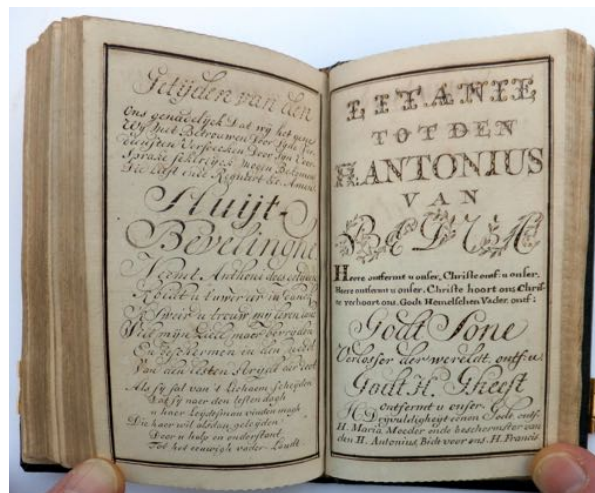 Getijden van den
Ons genadelyck Dat wy het genen
Wy met Betrouwen Door syne Ver-
diensten Versoecken Door syn Voor-
spraek sekerlyck mogen Bekomen
Die Leeft ende Regneert &c. Amen.
Sluijt-
Bevelinghe
Neemt Antheni dees getyden
Ik sweir u trouw my leven lanck
Wilt mijn ziele maer bevryden
En beschermen in den
Van den lesten strydt der doot
Als sy sal van't Lichaem scheyden
Dat sy naer den lesten dagh
u haer Leydtsman vinden magh
Die haer wil alsdan geleyden
Door u hulp en onderstant
Tot het eeuwigh vader-Landt.
LITANIE
TOT DEN
H. ANTONIUS
VAN
PADUA
Heere ontfermt u onser, Christe ontf: u onser.
Heere ontfermt u onser. Christe hoort ons Chris-
te verhoort ons. Godt Hemelschen Vader ontf:
Godt Sone
Verlosser der wereldt. ontf: u:
Godt H. Gheest
ontfermt u onser.
H. Dryvuldigheyt eenen Godt ontf:
H. Maria Moeder ende beschermster van
den H. Antonius, Bidt voor ons. H. Francis